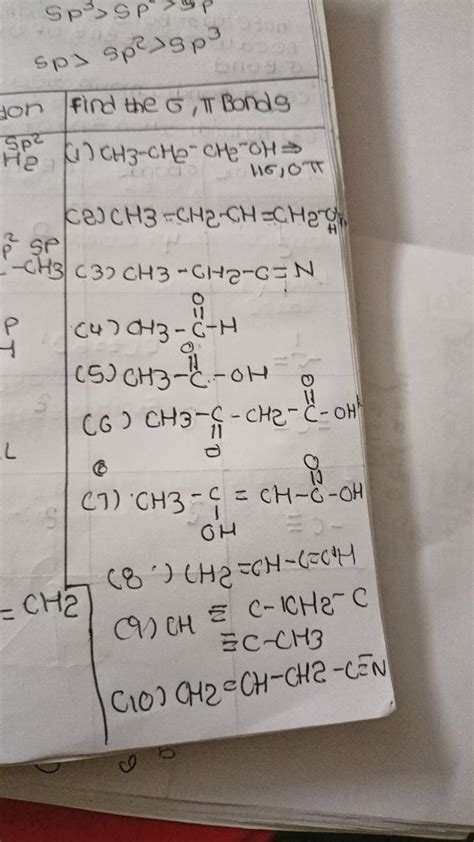 Sp³>Sp²>Sp
Sp> Sp²>Sp³
ion
Find the σ, π Bonds
Sp²
H2
(1) CH3-CH2-CH2-OH ⇒
11σ, 0π
(2) CH3=CH2-CH=CH2-
H
p² Sp
-CH3
(3) CH3-CH2-C=N
O
(4) CH3-C-H
O
(5) CH3-C-OH
O
(6) CH3-C-CH2-C-OH
O
O
(7) CH3-C=CH-C-OH
OH
(8) CH2=CH-
= CH2
(9) CH ≡ C-(CH2-C
≡C-CH3
(10) CH2=CH-CH2-C≡N